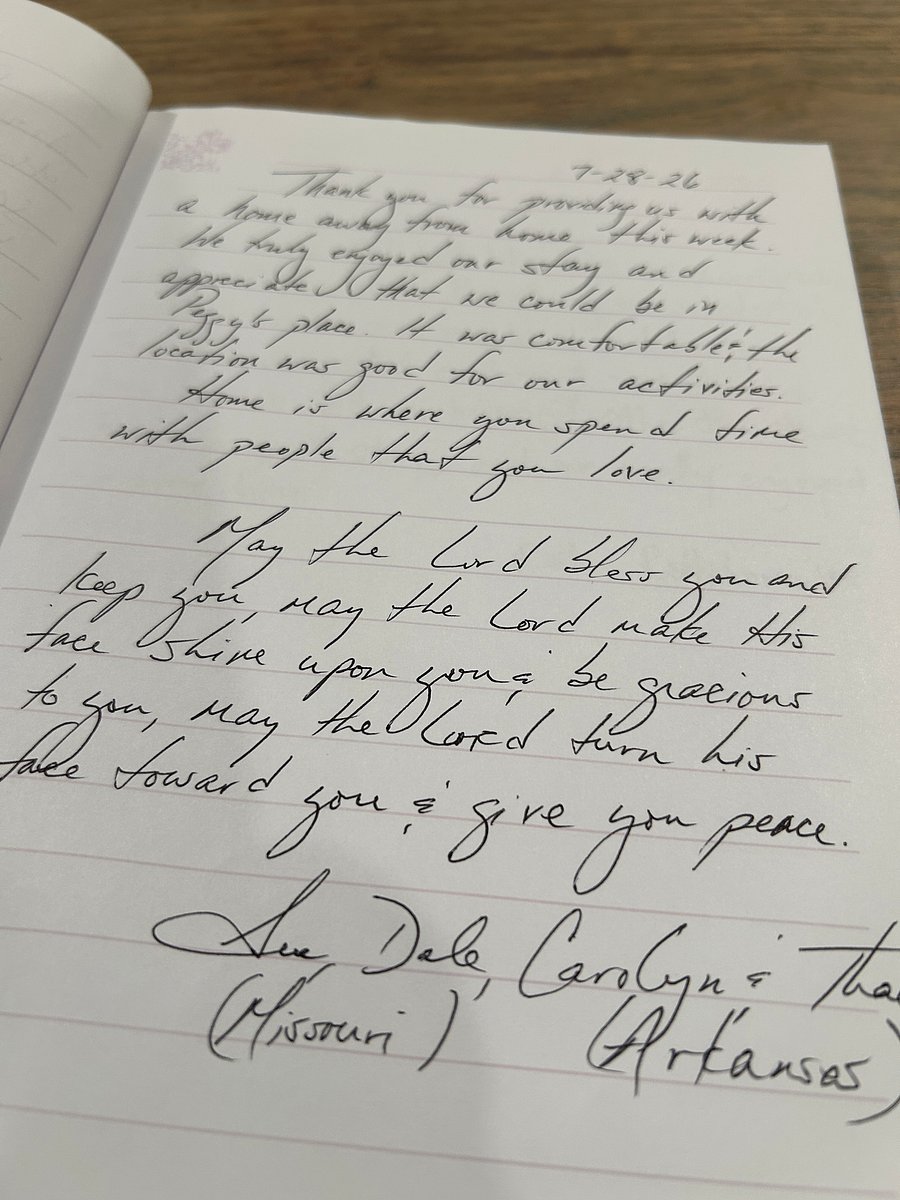 7-28-26
Thank you for providing us with
a home away from home this week.
We truly enjoyed our stay and
appreciate that we could be in
Peggy's place. It was comfortable & the
location was good for our activities.
Home is where you spend time
with people that you love.
May the Lord bless you and
keep you, may the Lord make His
face shine upon you & be gracious
to you, may the Lord turn his
face toward you & give you peace.
Sue, Dale, Carolyn &
(Missouri) (Arkansas)